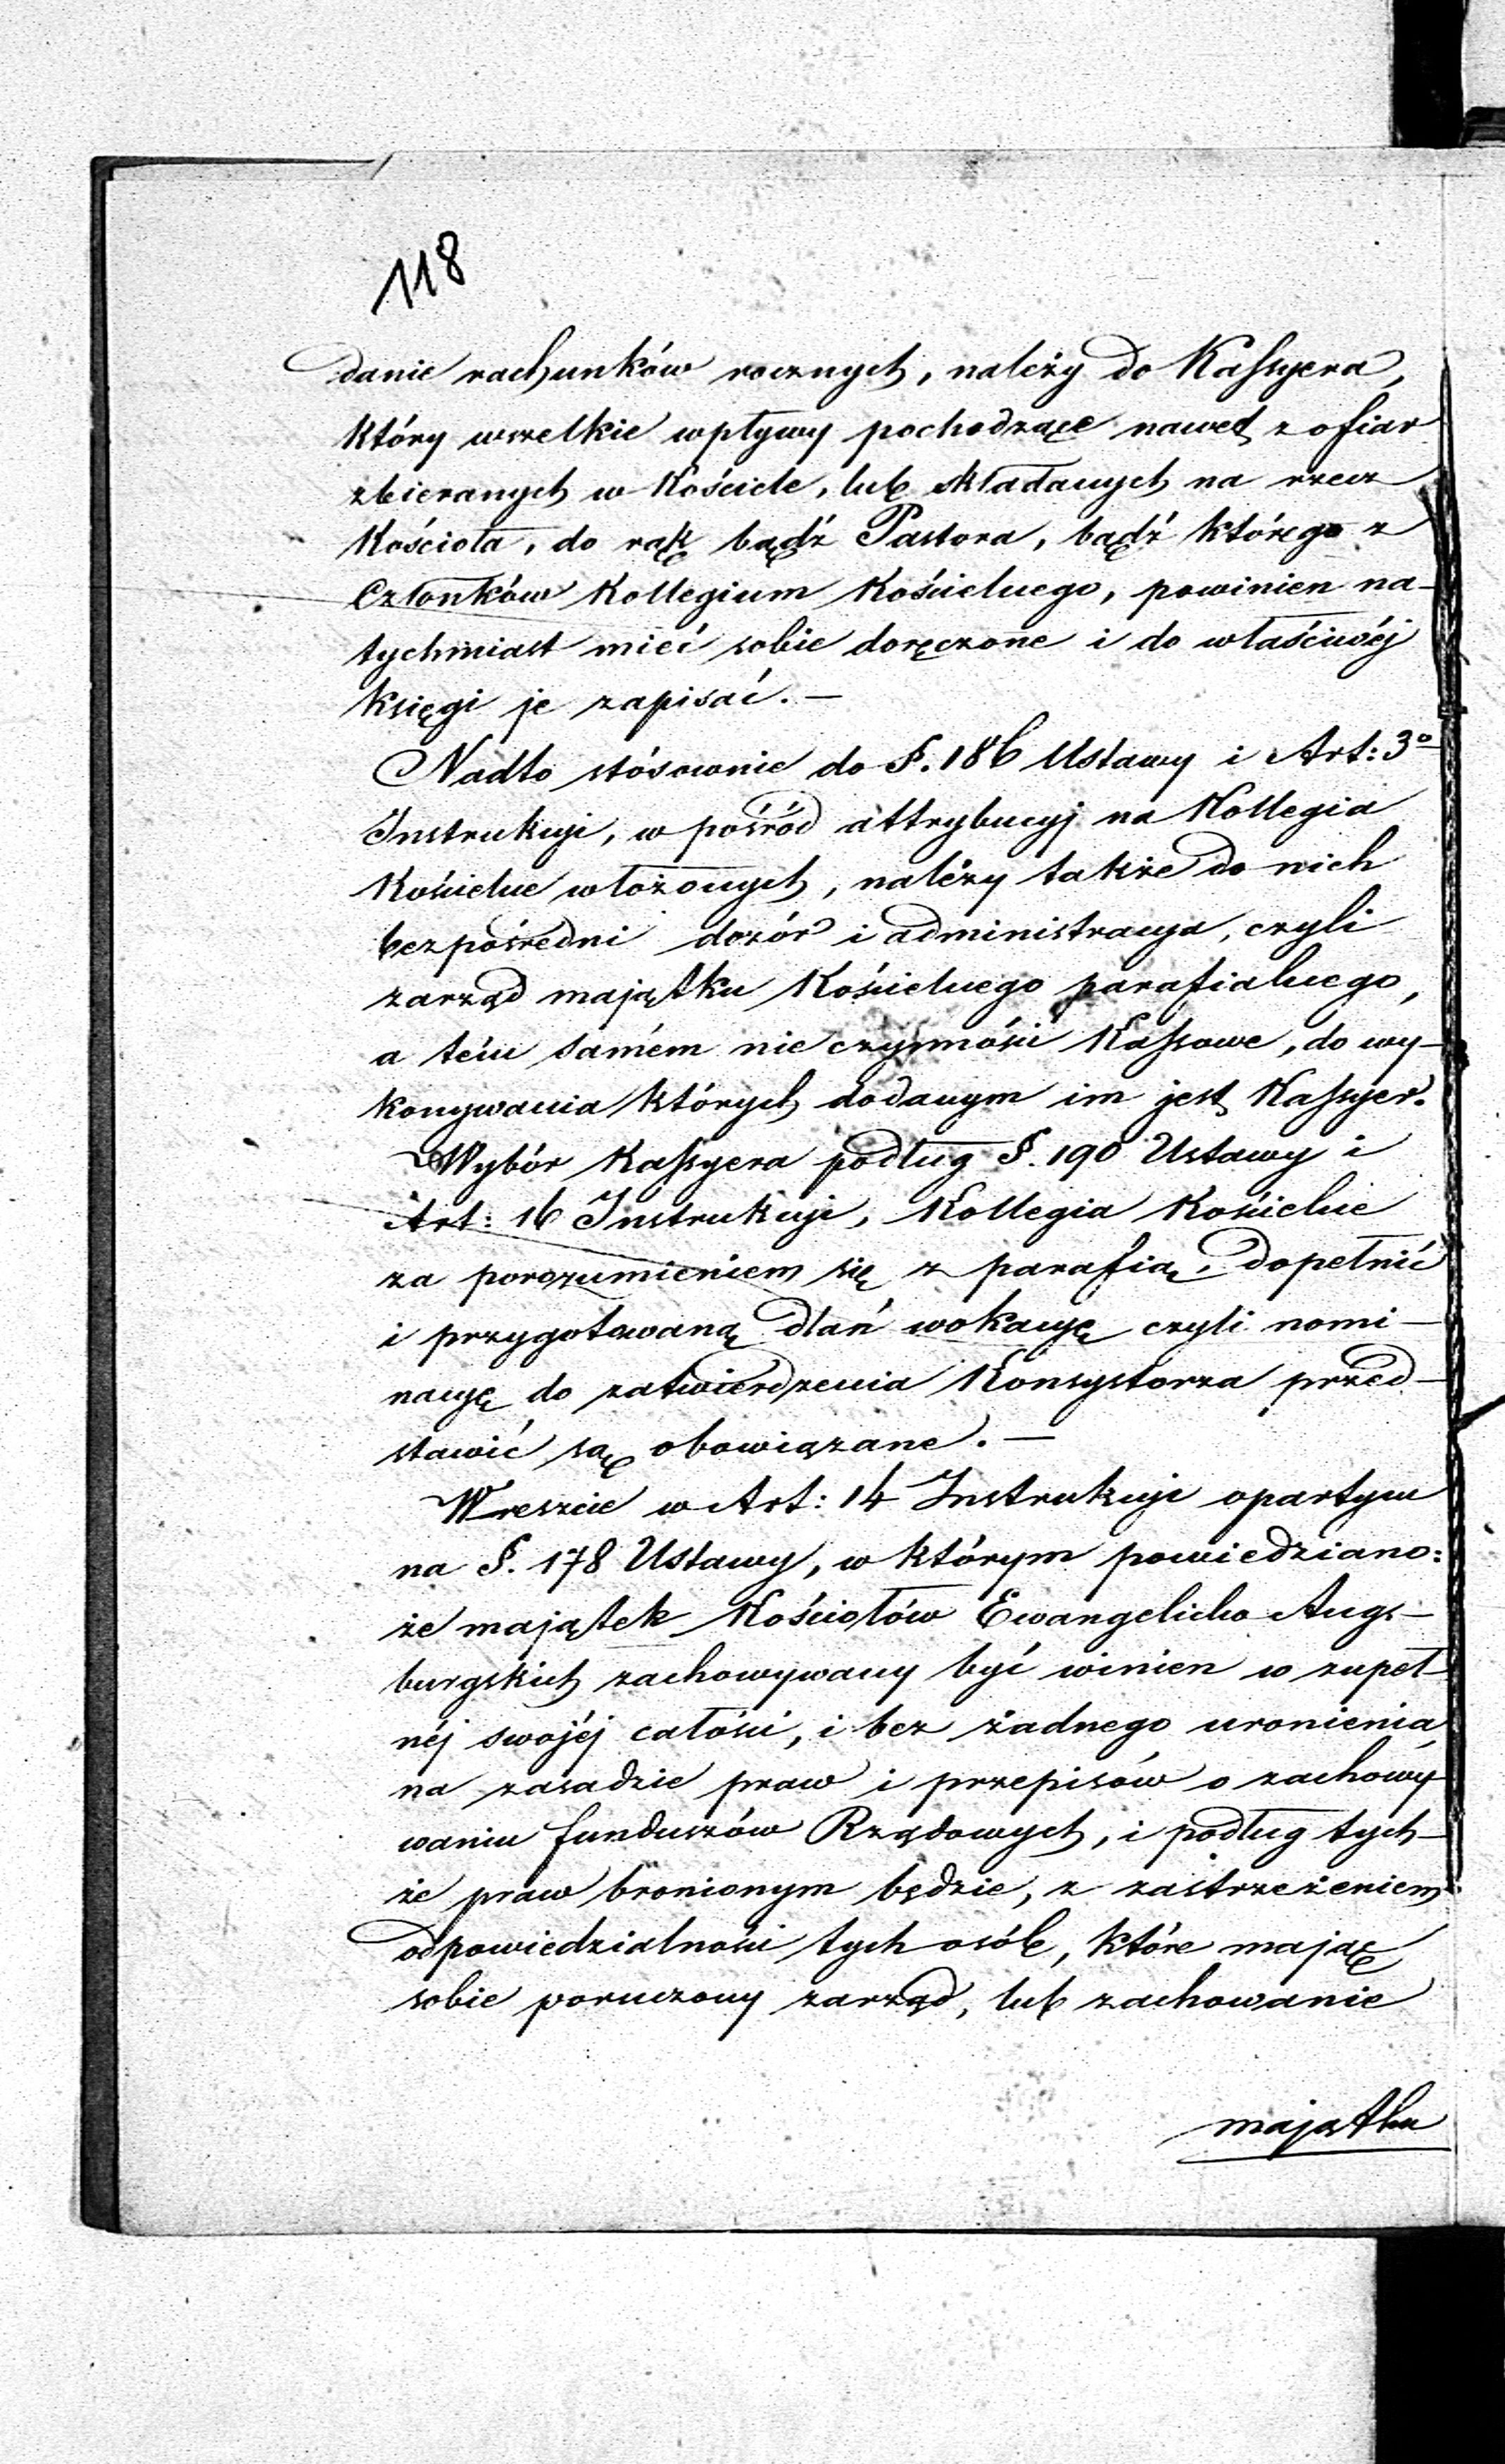 118
danie rachunków rocznych, należy do Kassyera,
który wszelkie wpływy pochodzące nawet z ofiar
zbieranych w Kościele, lub składanych na rzecz
Kościoła, do rąk bądź Pastora, bądź którego z
Członków Kollegium Kościelnego, powinien na-
tychmiast mieć sobie doręczone i do właściwéj
księgi je zapisać. —
Nadto stósownie do §. 186 Ustawy i Art: 3º
Instrukcyi, w pośród attrybucyj na Kollegia
Kościelne włożonych, należy także do nich
bezpośredni dozór i administracya, czyli
zarząd majątku Kościelnego parafialnego,
a tém samém nie czynności Kassowe, do wy-
konywania których dodanym im jest Kassyer.
Wybór Kassyera podług §. 190 Ustawy i
Art: 16 Instrukcyi, Kollegia Kościelne
za porozumieniem się z parafią, dopełnić
i przygotowaną dlań wokacyę czyli nomi-
nacyę do zatwierdzenia Konsystorza przed-
stawić są obowiązane. —
Wreszcie w Art: 14 Instrukcyi opartym
na §. 178 Ustawy, w którym powiedziano:
że majątek Kościołów Ewangelicko-Augs-
burgskich zachowywany być winien w zupeł-
néj swojéj całości, i bez żadnego uronienia,
na zasadzie praw i przepisów o zachowy-
waniu funduszów Rządowych, i podług tych-
że praw bronionym będzie, z zastrzeżeniem
odpowiedzialności tych osób, które mając
sobie poruczony zarząd, lub zachowanie
majątku